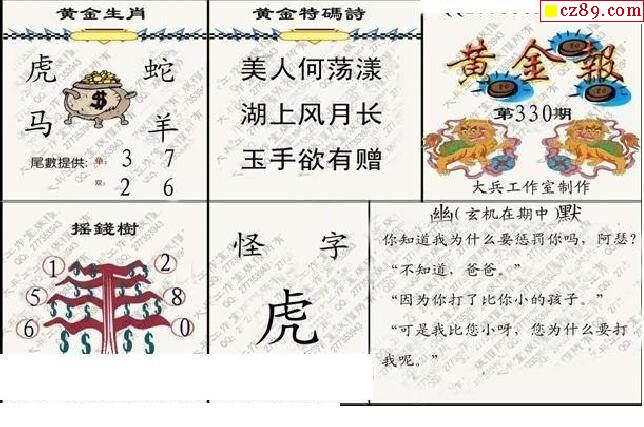 cz89.com
黄金生肖
虎 蛇
$
马 羊
尾數提供：單：3 7
双：2 6
黄金特碼詩
美人何荡漾
湖上风月长
玉手欲有赠
黄金報
第330期
大兵工作室制作
摇錢樹
1 2
5 8
6 0
怪 字
虎
幽(玄机在期中)默
你知道我为什么要惩罚你吗，阿瑟？
“不知道，爸爸。”
“因为你打了比你小的孩子。”
“可是我比您小呀，您为什么要打
我呢。”